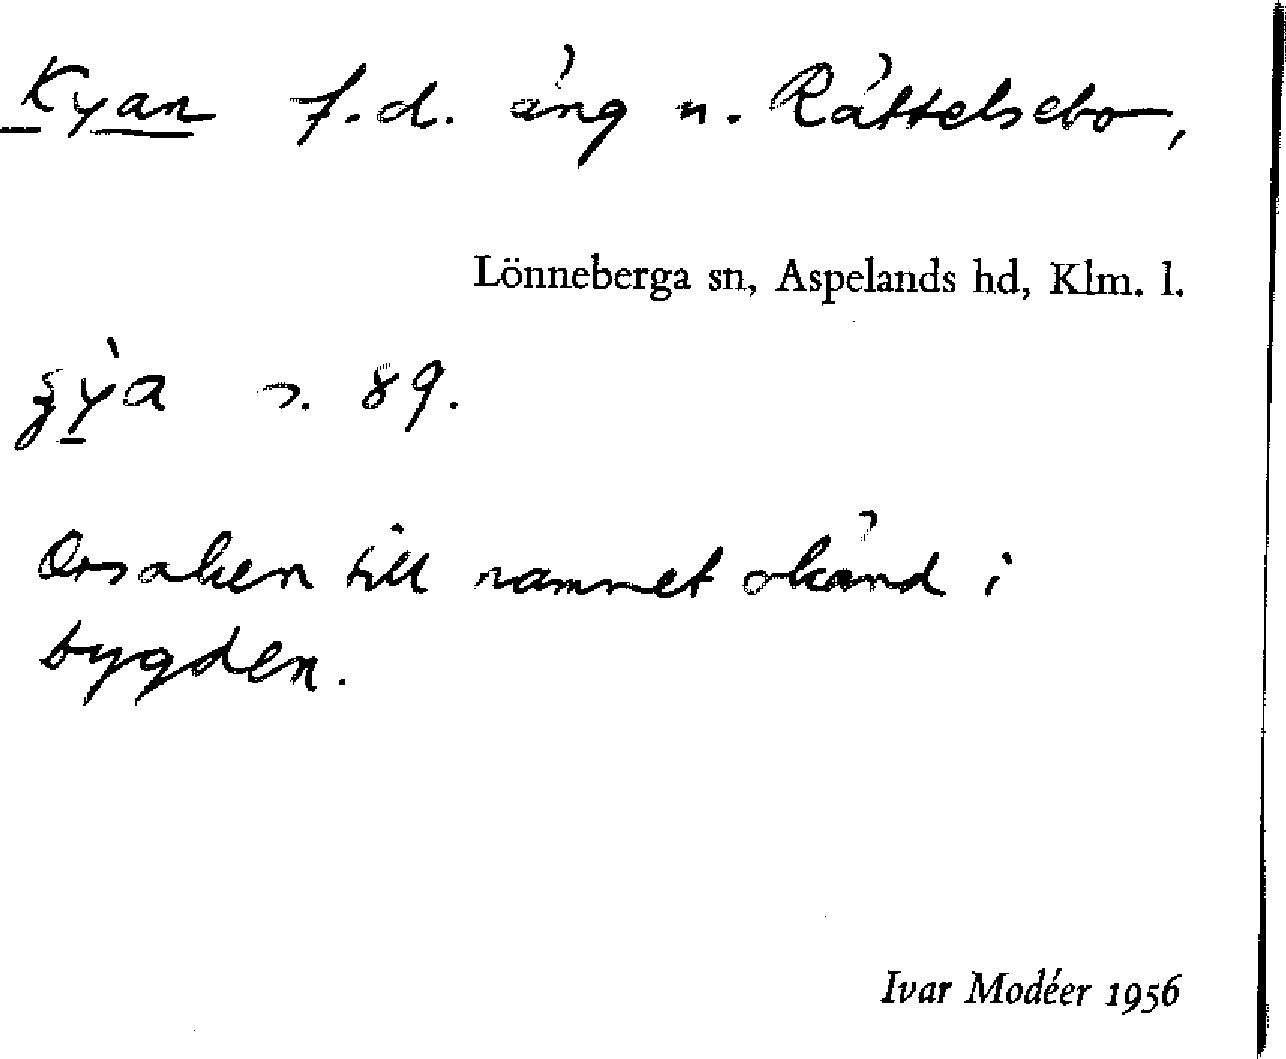 Kyan f.d. äng u. Rättelsebo,
Lönneberga sn, Aspelands hd, Klm. l.
s. 89.
Orsaken till namnet okänd i
bygden.
Ivar Modéer 1956